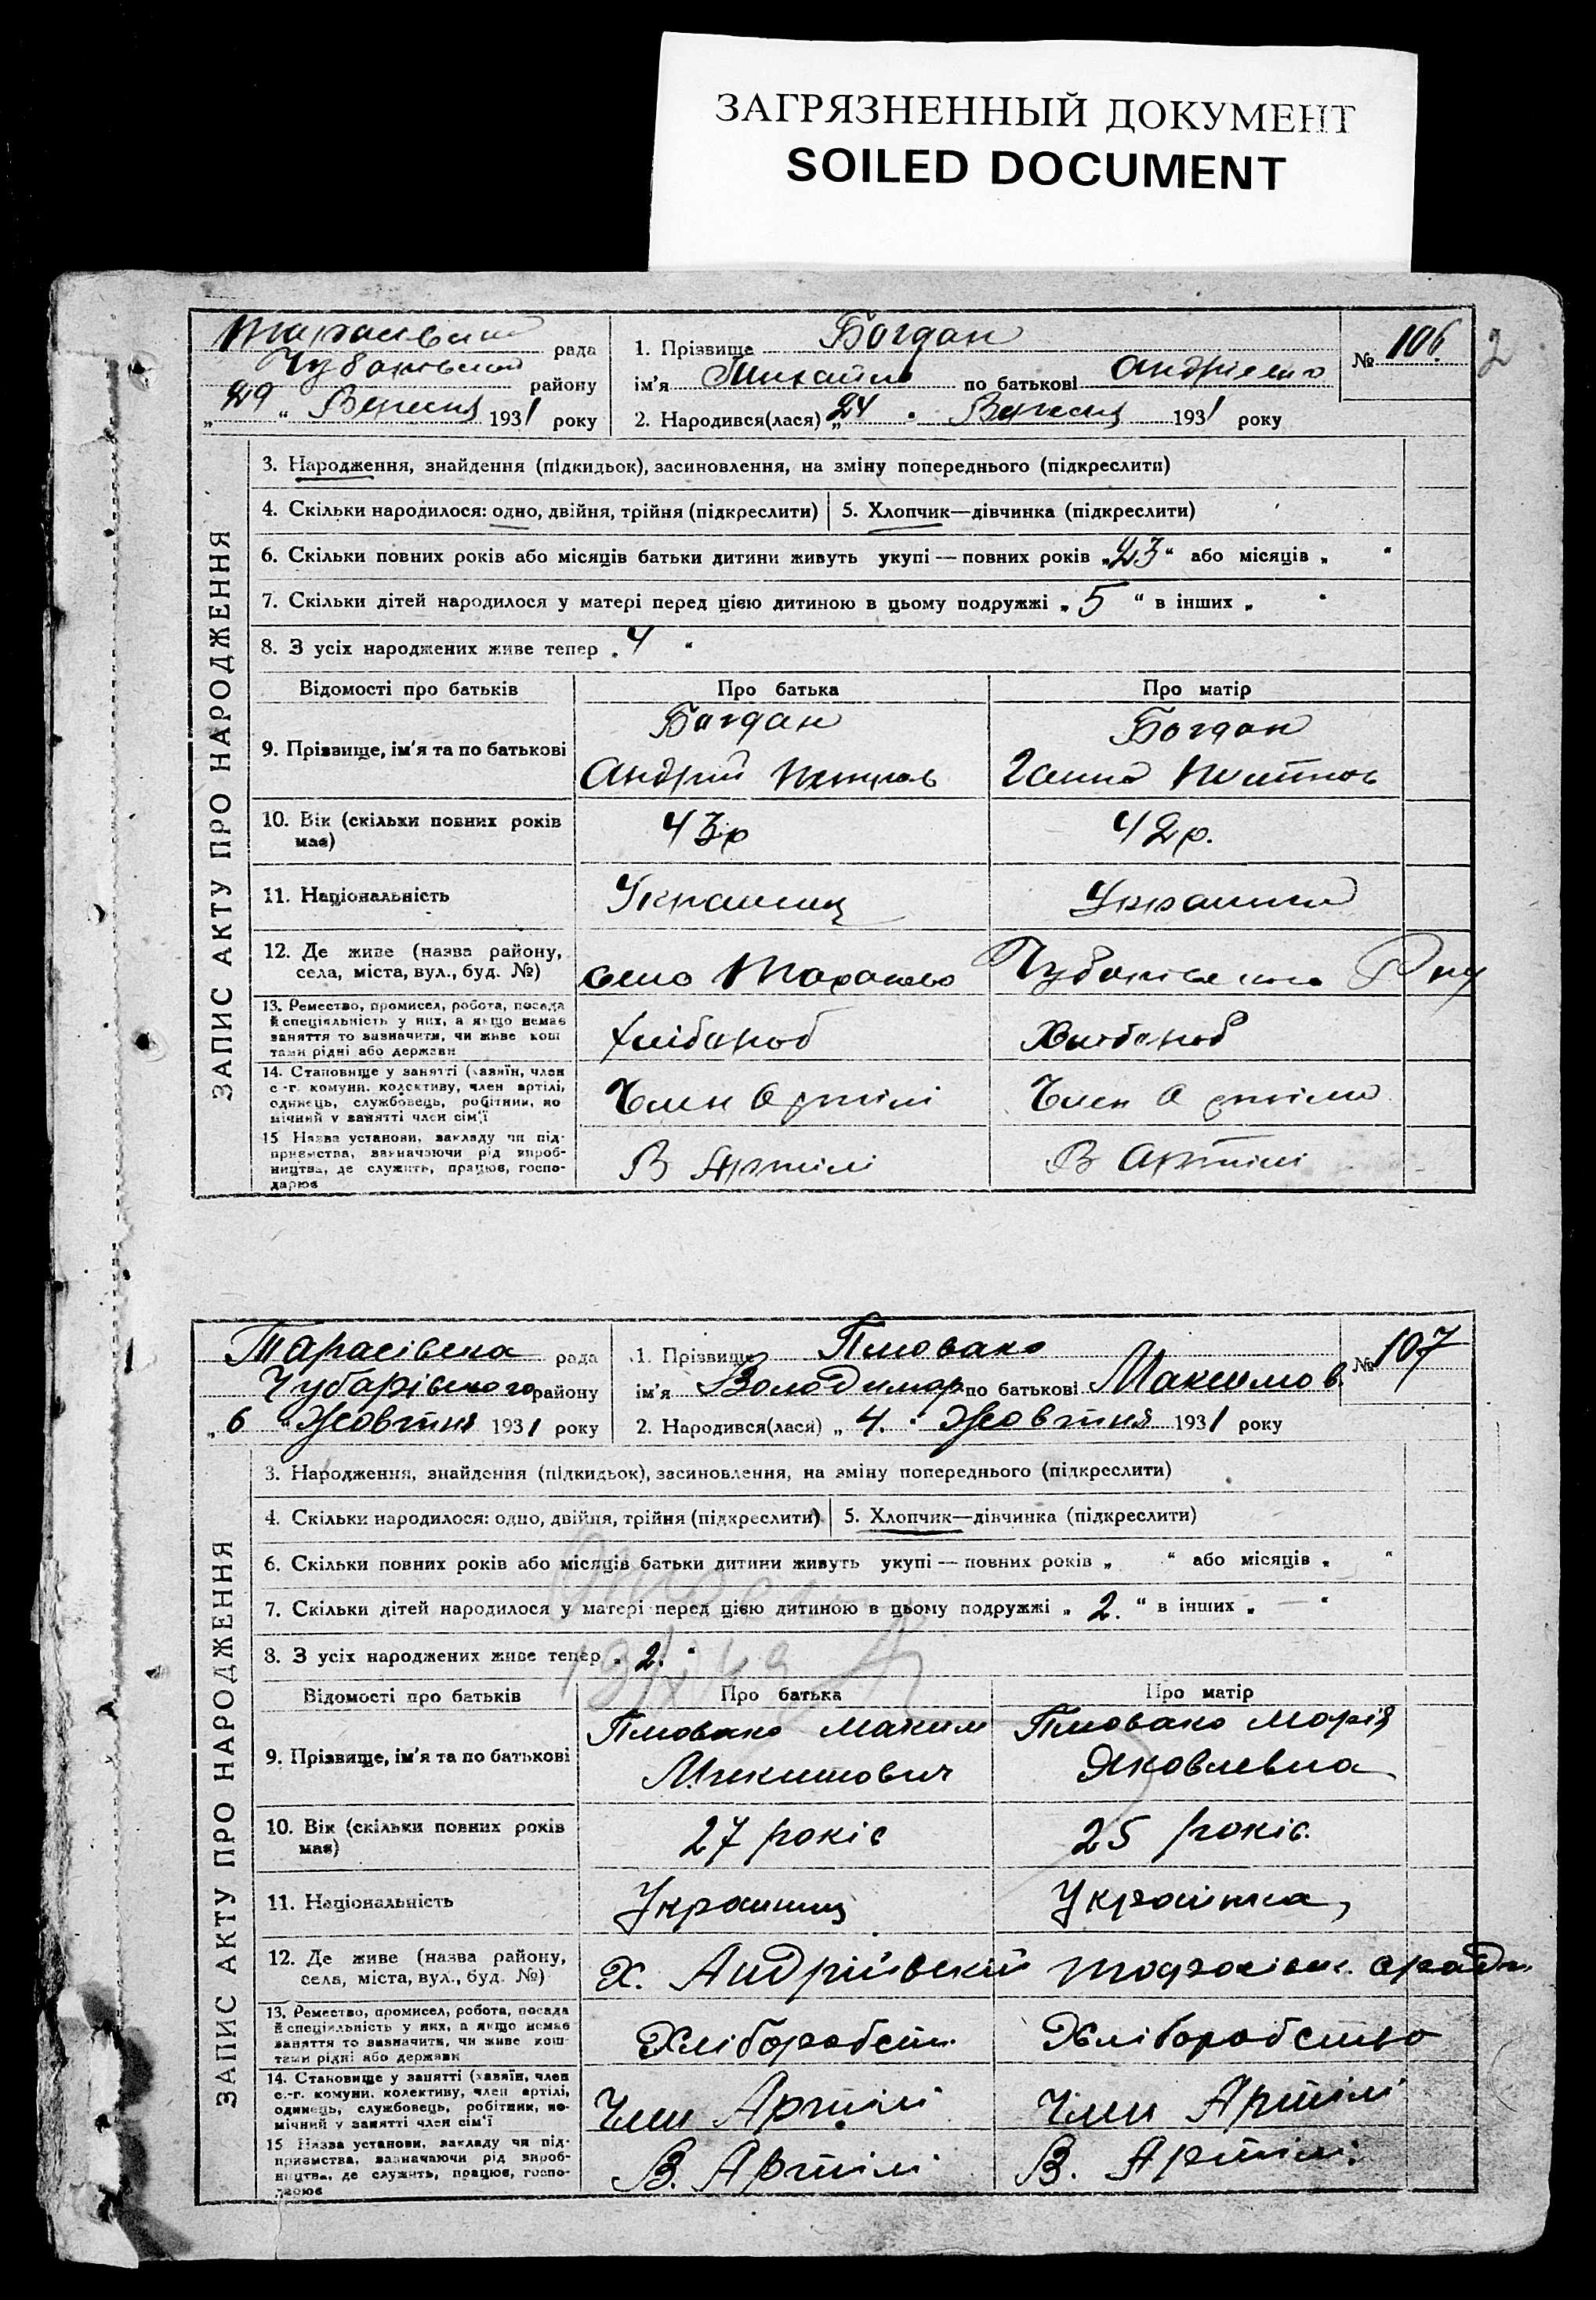 ЗАГРЯЗНЕННЫЙ ДОКУМЕНТ
SOILED DOCUMENT
2
рада
району
„29“ Вересня 1931 року
1. Прізвище Богдан
ім'я Михайло по батькові
2. Народився(лася) „24“ Вересня 1931 року
№ 106
ЗАПИС АКТУ ПРО НАРОДЖЕННЯ
3. Народження, знайдення (підкидьок), засиновлення, на зміну попереднього (підкреслити)
4. Скільки народилося: одно, двійня, трійня (підкреслити)
5. Хлопчик—дівчинка (підкреслити)
6. Скільки повних років або місяців батьки дитини живуть укупі — повних років „23“ або місяців „ “
7. Скільки дітей народилося у матері перед цією дитиною в цьому подружжі „5“ в інших „ “
8. З усіх народжених живе тепер „4“
Відомості про батьків Про батька Про матір
9. Прізвище, ім'я та по батькові
Богдан
Андрій
Богдан
Ганна
10. Вік (скільки повних років
має)
43р
42р.
11. Національність
Украинец
12. Де живе (назва району,
села, міста, вул., буд. №)
село
13. Ремество, промисел, робота, посада
й спеціяльність у них, а якщо немає
заняття то визначити, чи живе кош
тами рідні або держави
Хлібороб
Хлібороб
14. Становище у занятті (хазяїн, член
с.-г. комуни, колективу, член артілі,
одинець, службовець, робітник, по
мічний у занятті член сім'ї
Член Артілі
Член
15 Назва установи, закладу чи під-
приємства, зазначаючи рід вироб-
ництва, де служить, працює, госпо-
дарює
В Артілі
В Артілі
Тарасівська рада
Чубарівського району
„6“ Жовтня 1931 року
1. Прізвище
ім'я Володимир по батькові Максимов.
2. Народився(лася) „4.“ Жовтня 1931 року
№ 107
ЗАПИС АКТУ ПРО НАРОДЖЕННЯ
3. Народження, знайдення (підкидьок), засиновлення, на зміну попереднього (підкреслити)
4. Скільки народилося: одно, двійня, трійня (підкреслити)
5. Хлопчик—дівчинка (підкреслити)
6. Скільки повних років або місяців батьки дитини живуть укупі — повних років „ “ або місяців „ “
7. Скільки дітей народилося у матері перед цією дитиною в цьому подружжі „2.“ в інших „—“
8. З усіх народжених живе тепер „2.“
Відомості про батьків Про батька Про матір
9. Прізвище, ім'я та по батькові
Максим
Марія
Яковлевна
10. Вік (скільки повних років
має)
27 років
25 років.
11. Національність
Украинец
Українка,
12. Де живе (назва району,
села, міста, вул., буд. №)
Х. Андріївский
13. Ремество, промисел, робота, посада
й спеціяльність у них, а якщо немає
заняття то визначити, чи живе кош-
тами рідні або держави
Хліборобств.
Хліборобство
14. Становище у занятті (хазяїн, член
с.-г. комуни, колективу, член артілі,
одинець, службовець, робітник, по-
мічний у занятті член сім'ї
Член Артілі
Член Артілі
15 Назва установи, закладу чи під-
приємства, зазначаючи рід вироб-
ництва, де служить, працює, госпо-
дарює
В. Артілі
В. Артілі